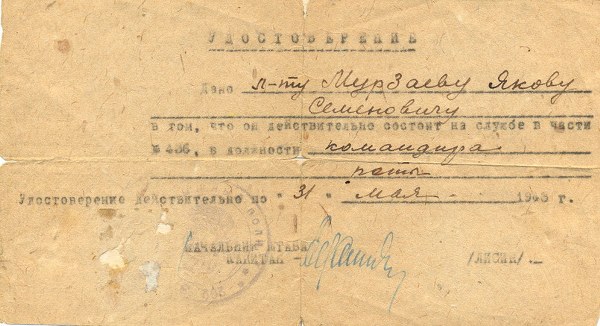 УДОСТОВЕРЕНИЕ
Дано л-ту Мурзаеву Якову
Семеновичу
в том, что он действительно состоит на службе в части
№ 486, в должности командира
роты
Удостоверение действительно по "31" мая 1943 г.
НАЧАЛЬНИК ШТАБА
КАПИТАН - /ЛИСИН/.